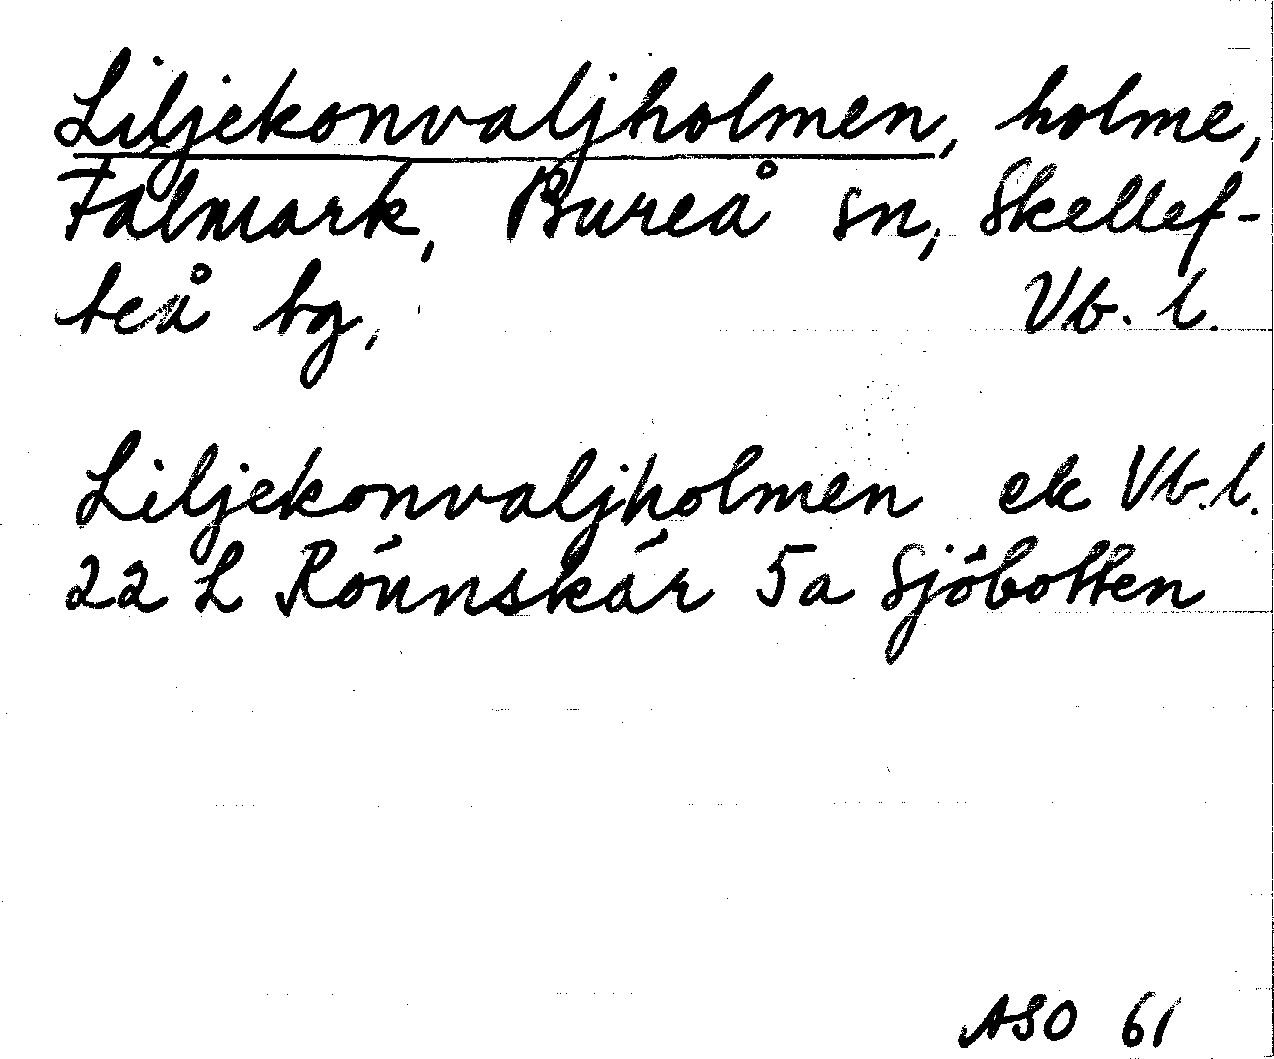 Liljekonvaljholmen, holme,
Falmark, Bureå sn, Skellef-
teå tg, Vb. l.
Liljekonvaljholmen ek Vb. l.
22 L Rönnskär 5a Sjöbotten
ASO 61